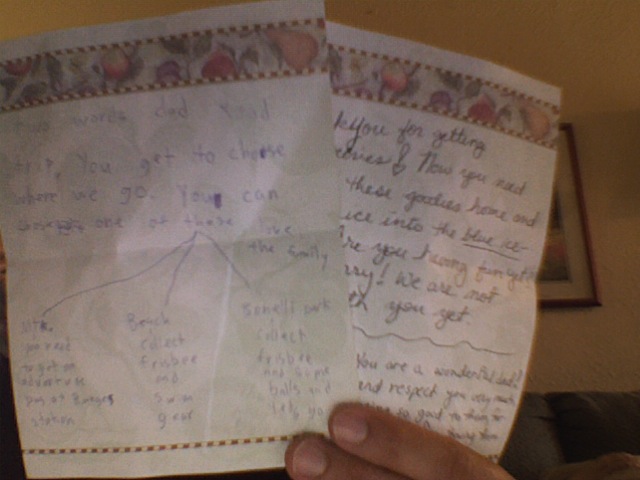 two words dad Road
trip, You get to choose
where we go. You can
choose one of these
love,
the family
Mtn.
you need
to get an
adventure
pass at Rangers
station
Beach
collect
frisbee
and
swim
gear
Bonelli park
collect
frisbee
and some
balls and
lets go
kYou for getting
! Now you need
these goodies home and
ice into the blue ice-
re you having fun yet
rry! We are not
th you yet.
You are a wonderful dad!
and respect you very much
so good to